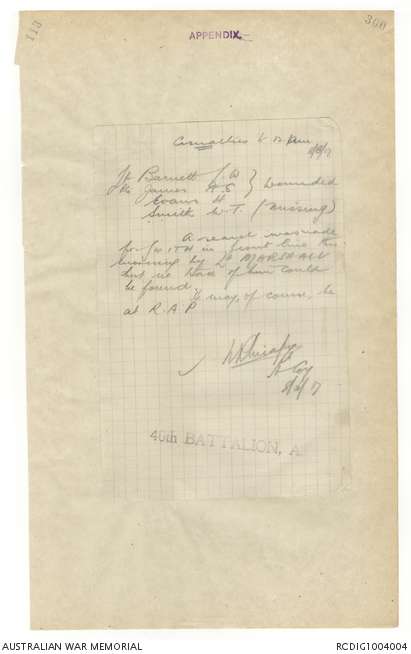 113
300
APPENDIX.
Casualties to 12
8/6/17
Lt Barnett J. W
Pte James A.S } Wounded
Evans H.
Smith W. T. (Missing)
A search was made
for SMITH in front line this
morning by Lt MARSHALL
but no trace of him could
be found. may, of course, be
at R.A.P
A Coy
8/6/17
40th BATTALION, A
AUSTRALIAN WAR MEMORIAL
RCDIG1004004